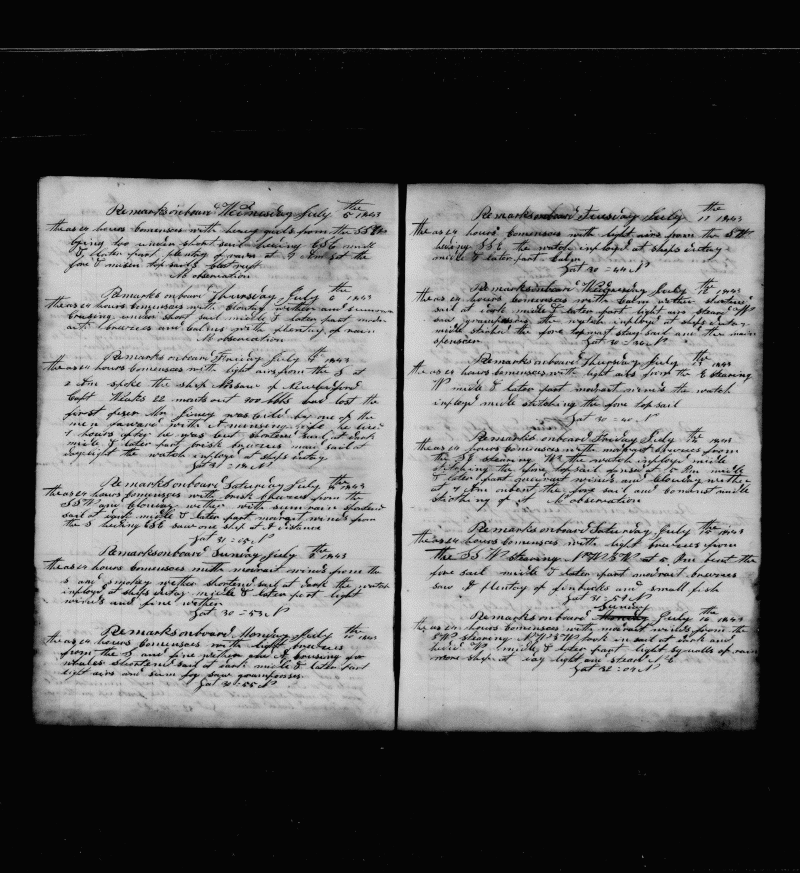 Remarks on board Wednesday July the 5 1843
theas 24 hours Comenses with hevy gails from the SSW
lying too under short sail heding ESE midle
& later part plenty of rain at 7 Am set the
fore & mizen top sails
No observation
Remarks on board Thursday July the 6 1843
theas 24 hours Comenses with Cloudy wether and sum rain
Crusing under short sail midle & later part
breezes and Calms with plenty of rain
No observation
Remarks on board Friday July the 7 1843
theas 24 hours Comenses with light airs from the S at
2 Am spoke the ship of New bedford
Capt 22 months out 200 bbls but lost the
first Mr was by one of the
men forward with A he lived
7 hours after he was shortend sail at dark
midle & later part brisk breezes maid sail at
daylight the watch imployd at ships dutay
Lat 31 = 14 N
Remarks on board Saturday July the 8 1843
theas 24 hours Comenses with brisk breezes from the
SSW and Cloudy wether with sum rain shortend
sail at dark midle & later part modrait winds from
the S heding ESE saw one ship at A distance
Lat 31 = 15 N
Remarks on board Sunday July the 9 1843
theas 24 hours Comenses with modrait winds from the
S and smokey wether shortend sail at dark the watch
imployd at ships dutay midle & later part light
winds and fine wether
Lat 30 = 53 N
Remarks on board Monday July the 10 1843
theas 24 hours Comenses with light breezes
from the S and fine wether and A Crusing for
whales shortend sail at dark midle & later part
light airs and sum fog saw grampuses
Lat 30 = 55 N
Remarks on board Tuesday July the 11 1843
theas 24 hours Comenses with light airs from the SW
heding SSE the watch imployd at ships dutay
midle & later part Calm
Lat 30 = 44 N
Remarks on board Wednesday July the 12 1843
theas 24 hours Comenses with Calm wether shortend
sail at dark midle & later part light airs steard W
saw grampuses the watch imployd at ships dutay
midle stiched the fore topmast stay sail and the main
spencer Lat 30 = N
Remarks on board Thursday July the 13 1843
theas 24 hours Comenses with light airs from the E stearing
W midle & later part modrait winds the watch
imployd midle stitching the fore top sail
Lat 31 = 40 N
Remarks on board Friday July the 14 1843
theas 24 hours Comenses with modrait breezes from
the SE stearing W the watch imployd midle
stitching the fore top sail at 5 Pm midle
& later part winds and Cloudy wether
at 7 Am unbent the fore sail and midle
stiching of it No observation
Remarks on board Saturday July the 15 1843
theas 24 hours Comenses with light breezes from
the SSW stearing at 5 Pm bent the
fore sail midle & later part modrait breezes
saw A plentay of finbacks and small fish
Lat 31 = 59 N
Sunday
Remarks on board Monday July the 16 1843
theas 24 hours Comenses with modrait winds from the
SW stearing took in sail at dark and
W midle & later part light squalls of rain
more ship at day light and steard NE
Lat 32 = 07 N